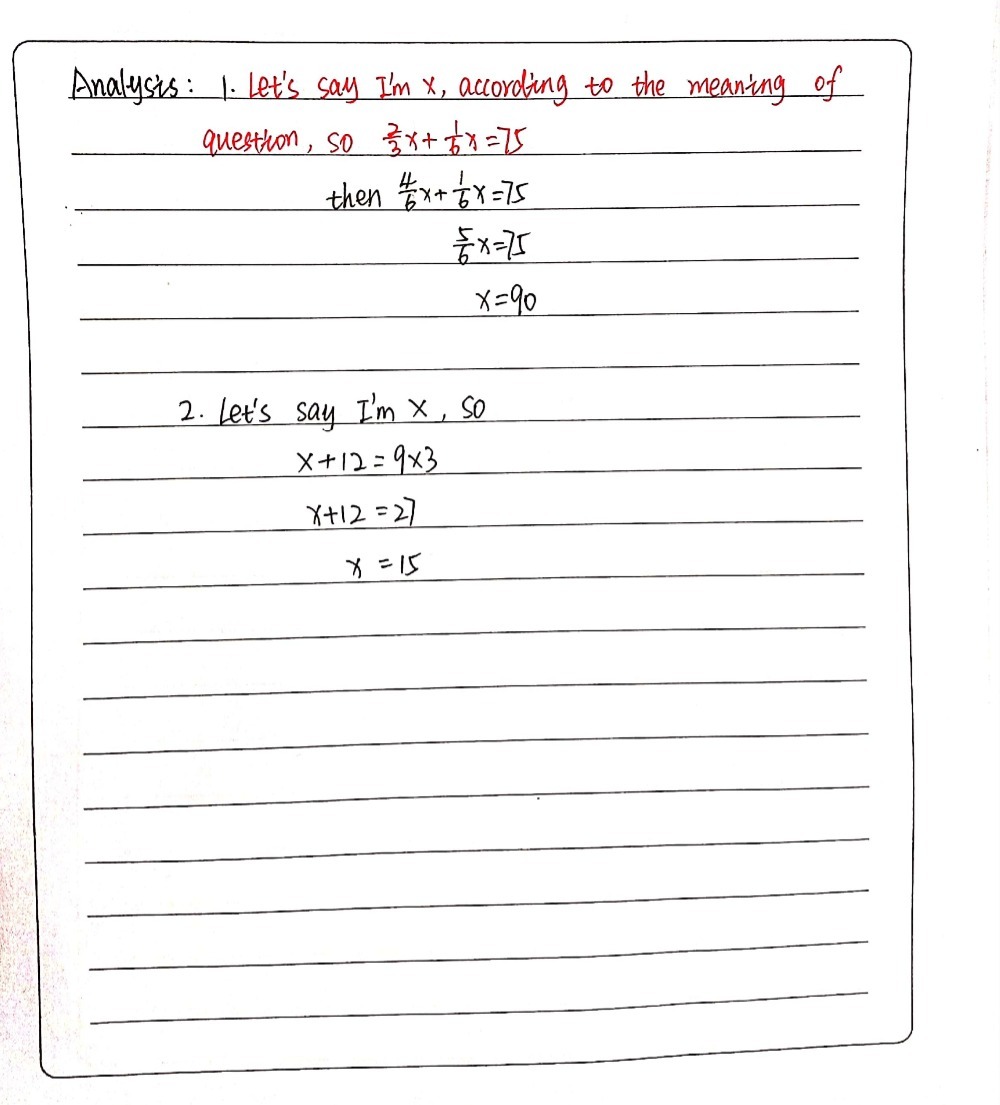 Analysis: 1. Let's say I'm x, according to the meaning of
question, so 2/3x+1/6x=75
then 4/6x+1/6x=75
5/6x=75
x=90
2. Let's say I'm x, so
x+12=9×3
x+12=27
x=15